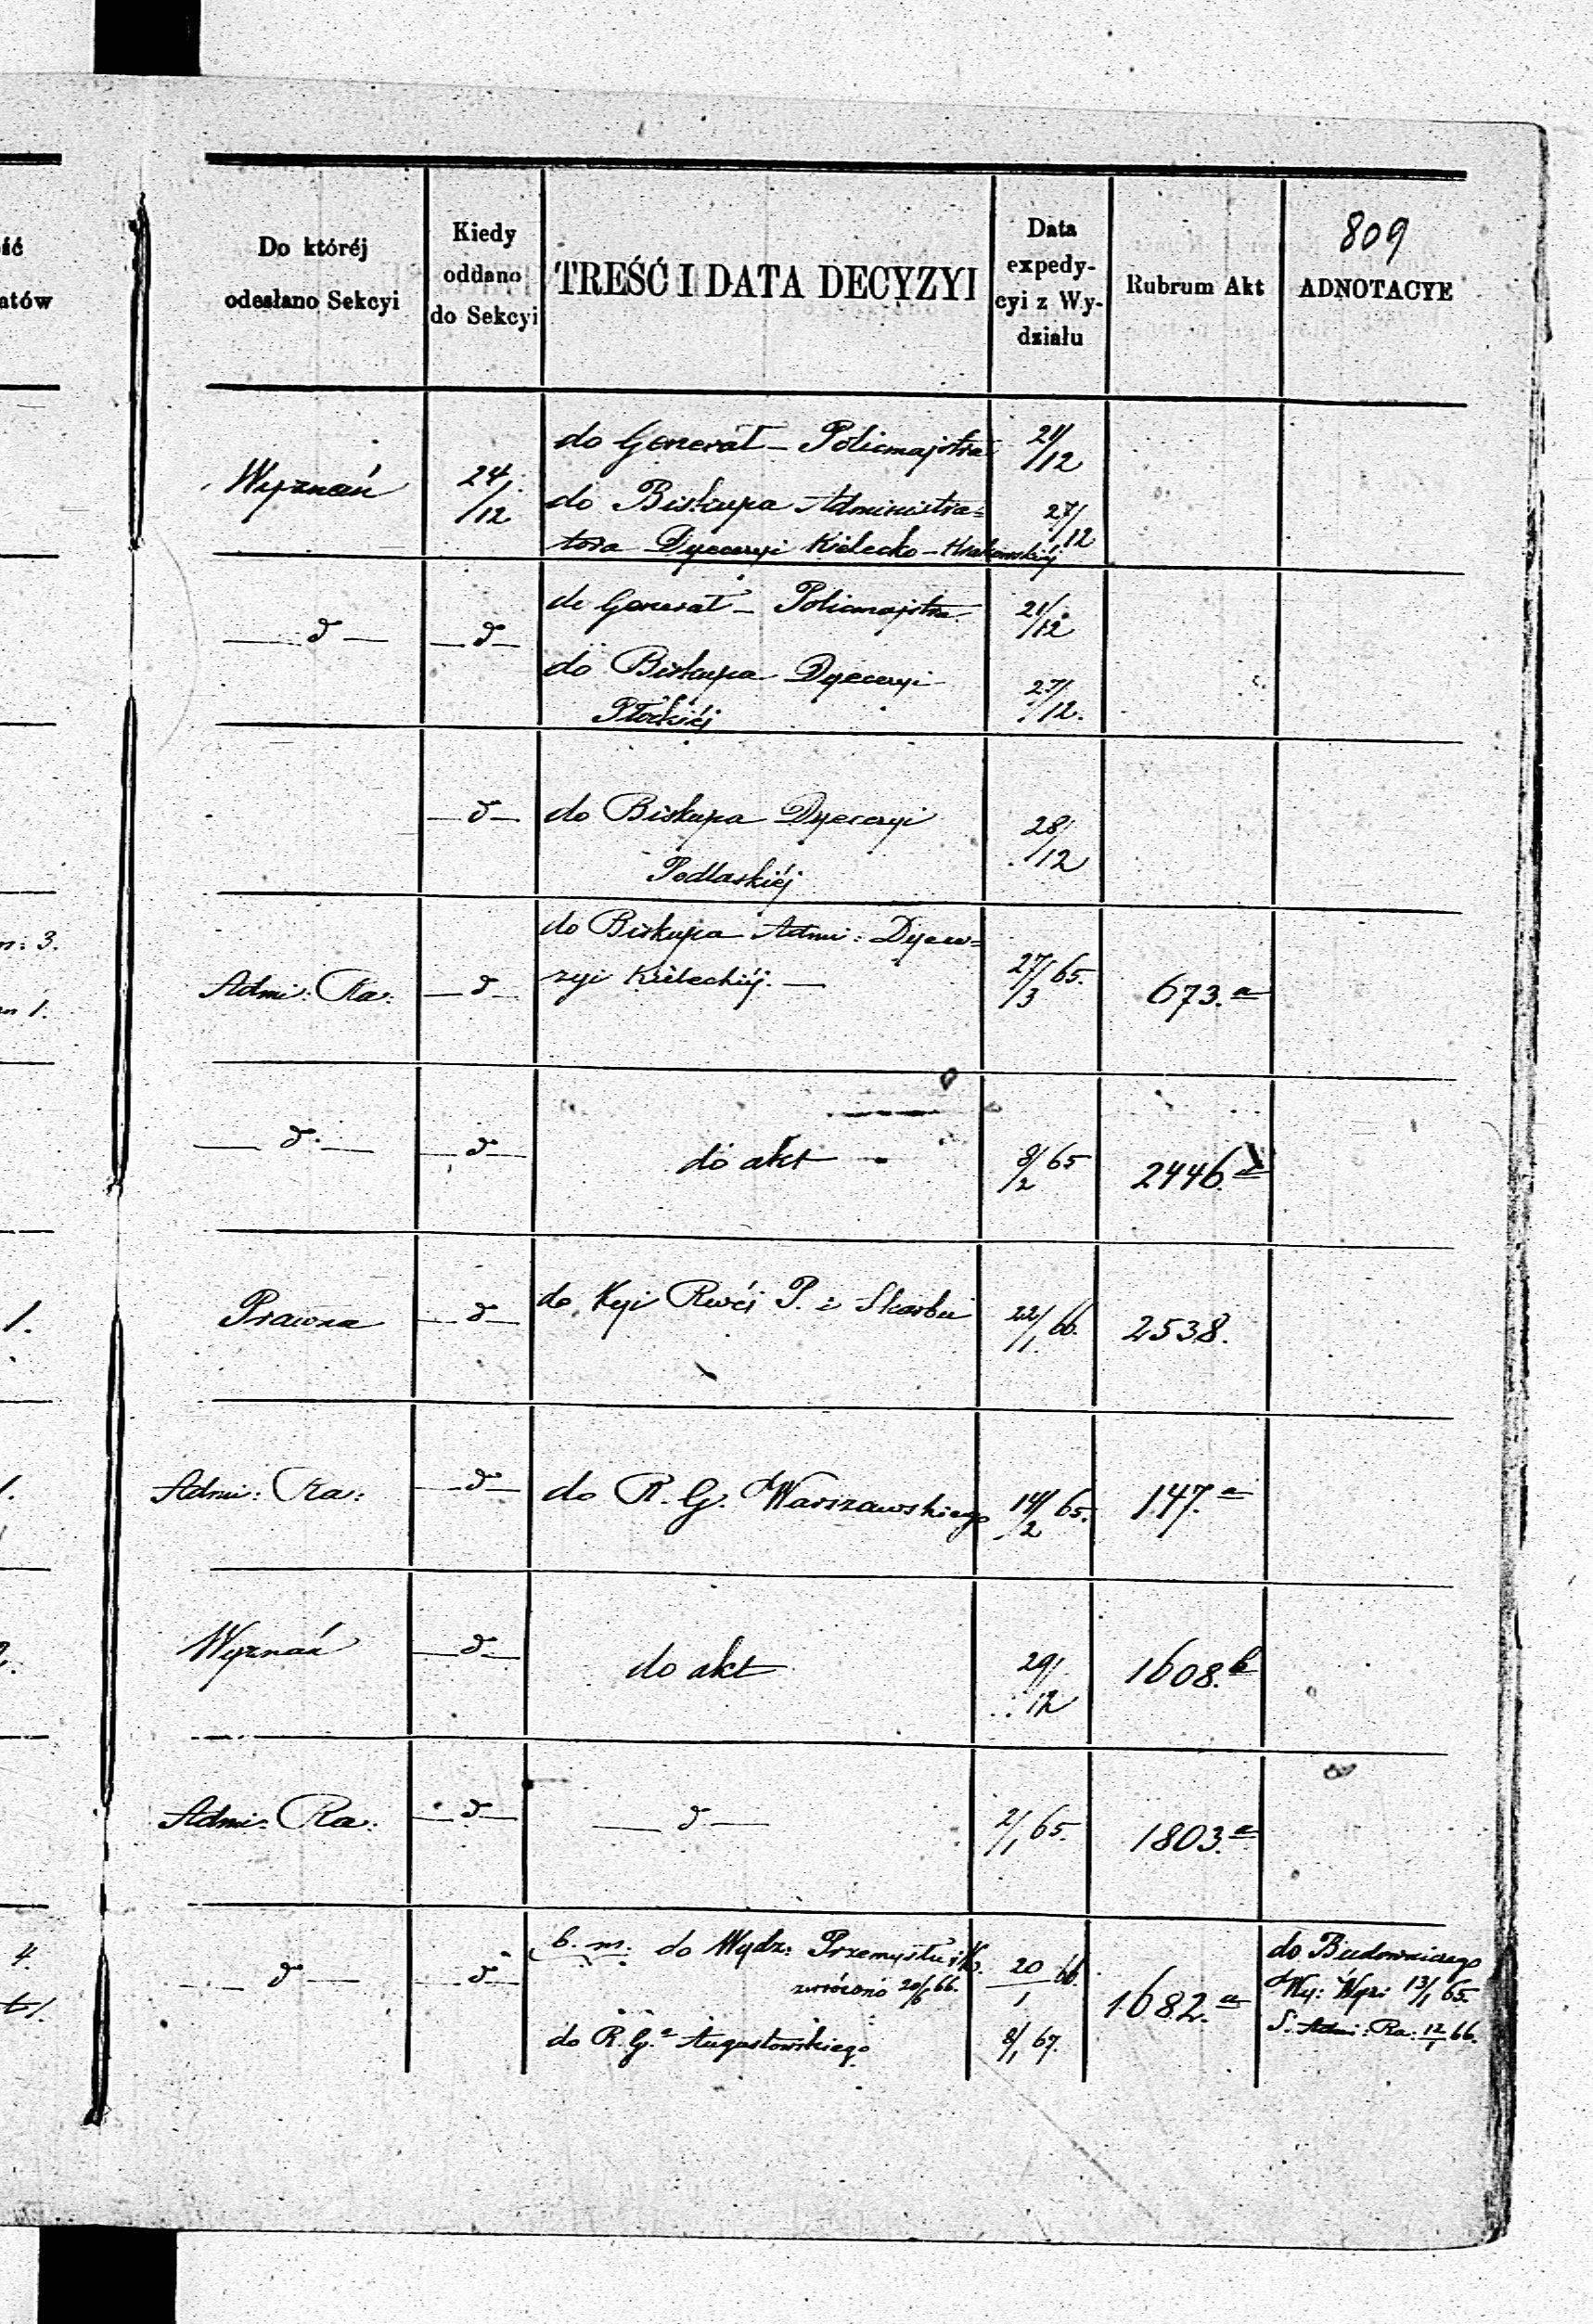 809
ść
atów
Do któréj
odesłano Sekcyi
Kiedy
oddano
do Sekcyi
TREŚĆ I DATA DECYZYI
Data
expedy-
cyi z Wy-
działu
Rubrum Akt
ADNOTACYE
Wyznań
24/12
do Generał - Policmajstra
21/12
do Biskupa Administra=
tora Dyecezyi Kielecko - Krakowskiéj
27/12
— d —
— d —
do Generał - Policmajstra
21/12
do Biskupa Dyecezyi
Płockiéj
27/12.
— d —
do Biskupa Dyecezyi
Podlaskiéj
28/12
n: 3.
n 1.
Admi: Ra:
— d —
do Biskupa Admi: Dyece=
zyi Kieleckiéj. —
27/3 65.
673.a
— d —
— d —
do akt
8/2 65
2446.a
1.
Prawna
— d —
do Kyi Rwéj P. i Skarbu
22/1 66.
2538.
1.
Admi: Ra:
— d —
do R. G. Warszawskiego
14/2 65.
147.a
Wyznań
— d —
do akt
29/12
1608.b
Admi: Ra:
— d —
— d —
2/1 65.
1803.a
4.
— d —
— d —
b. m. do Wydz: Przemysłu i K.
zwrócono 20/6 66.
do R. G. Augustowskiego
20/1 66.
8/1 67.
1682.a
do Budowniczego
Wy: Wyzn 13/1 65.
S. Admi: Ra: 12/1 66.